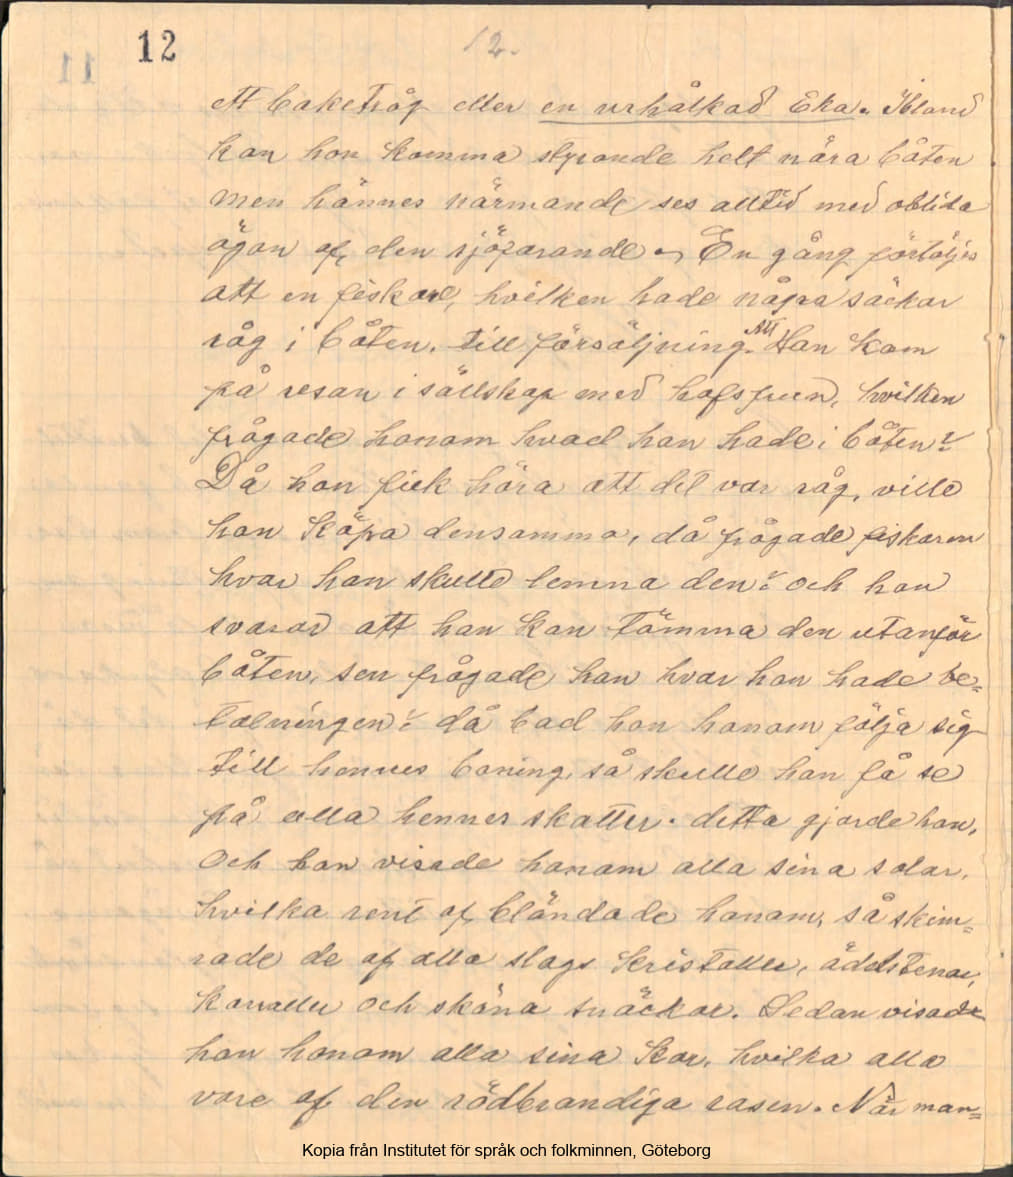 12
12.
ett baketråg eller en urhålkad Eka. Ibland
kan hon komma styrande helt nära båten
men hännes närmande ses alltid med oblida
ögon af den sjöfarande. En gång förtäljes
att en fiskare, hvilken hade några säckar
råg i båten, till försäljning. Att Han kom
på resan i sällskap med hafsfrun, hvilken
frågade honom hvad han hade i båten?
Då hon fick höra att det var råg, ville
hon köpa densamma, då frågade fiskaren
hvar han skulle lemna den? och hon
svarad att han kan tömma den utanför
båten, sen frågade han hvar hon hade be=
talningen? då bad hon honom följa sig
till hennes boning, så skulle han få se
på alla hennes skatter. detta gjorde han,
och hon visade honom alla sina salar,
hvilka rent af bländade honom, så skim=
rade de af alla slags kristaller, ädelstenar,
korraller och sköna snäckor. Sedan visade
hon honom alla sina kor, hvilka alla
vore af den rödbrandiga rasen. När man=
Kopia från Institutet för språk och folkminnen, Göteborg